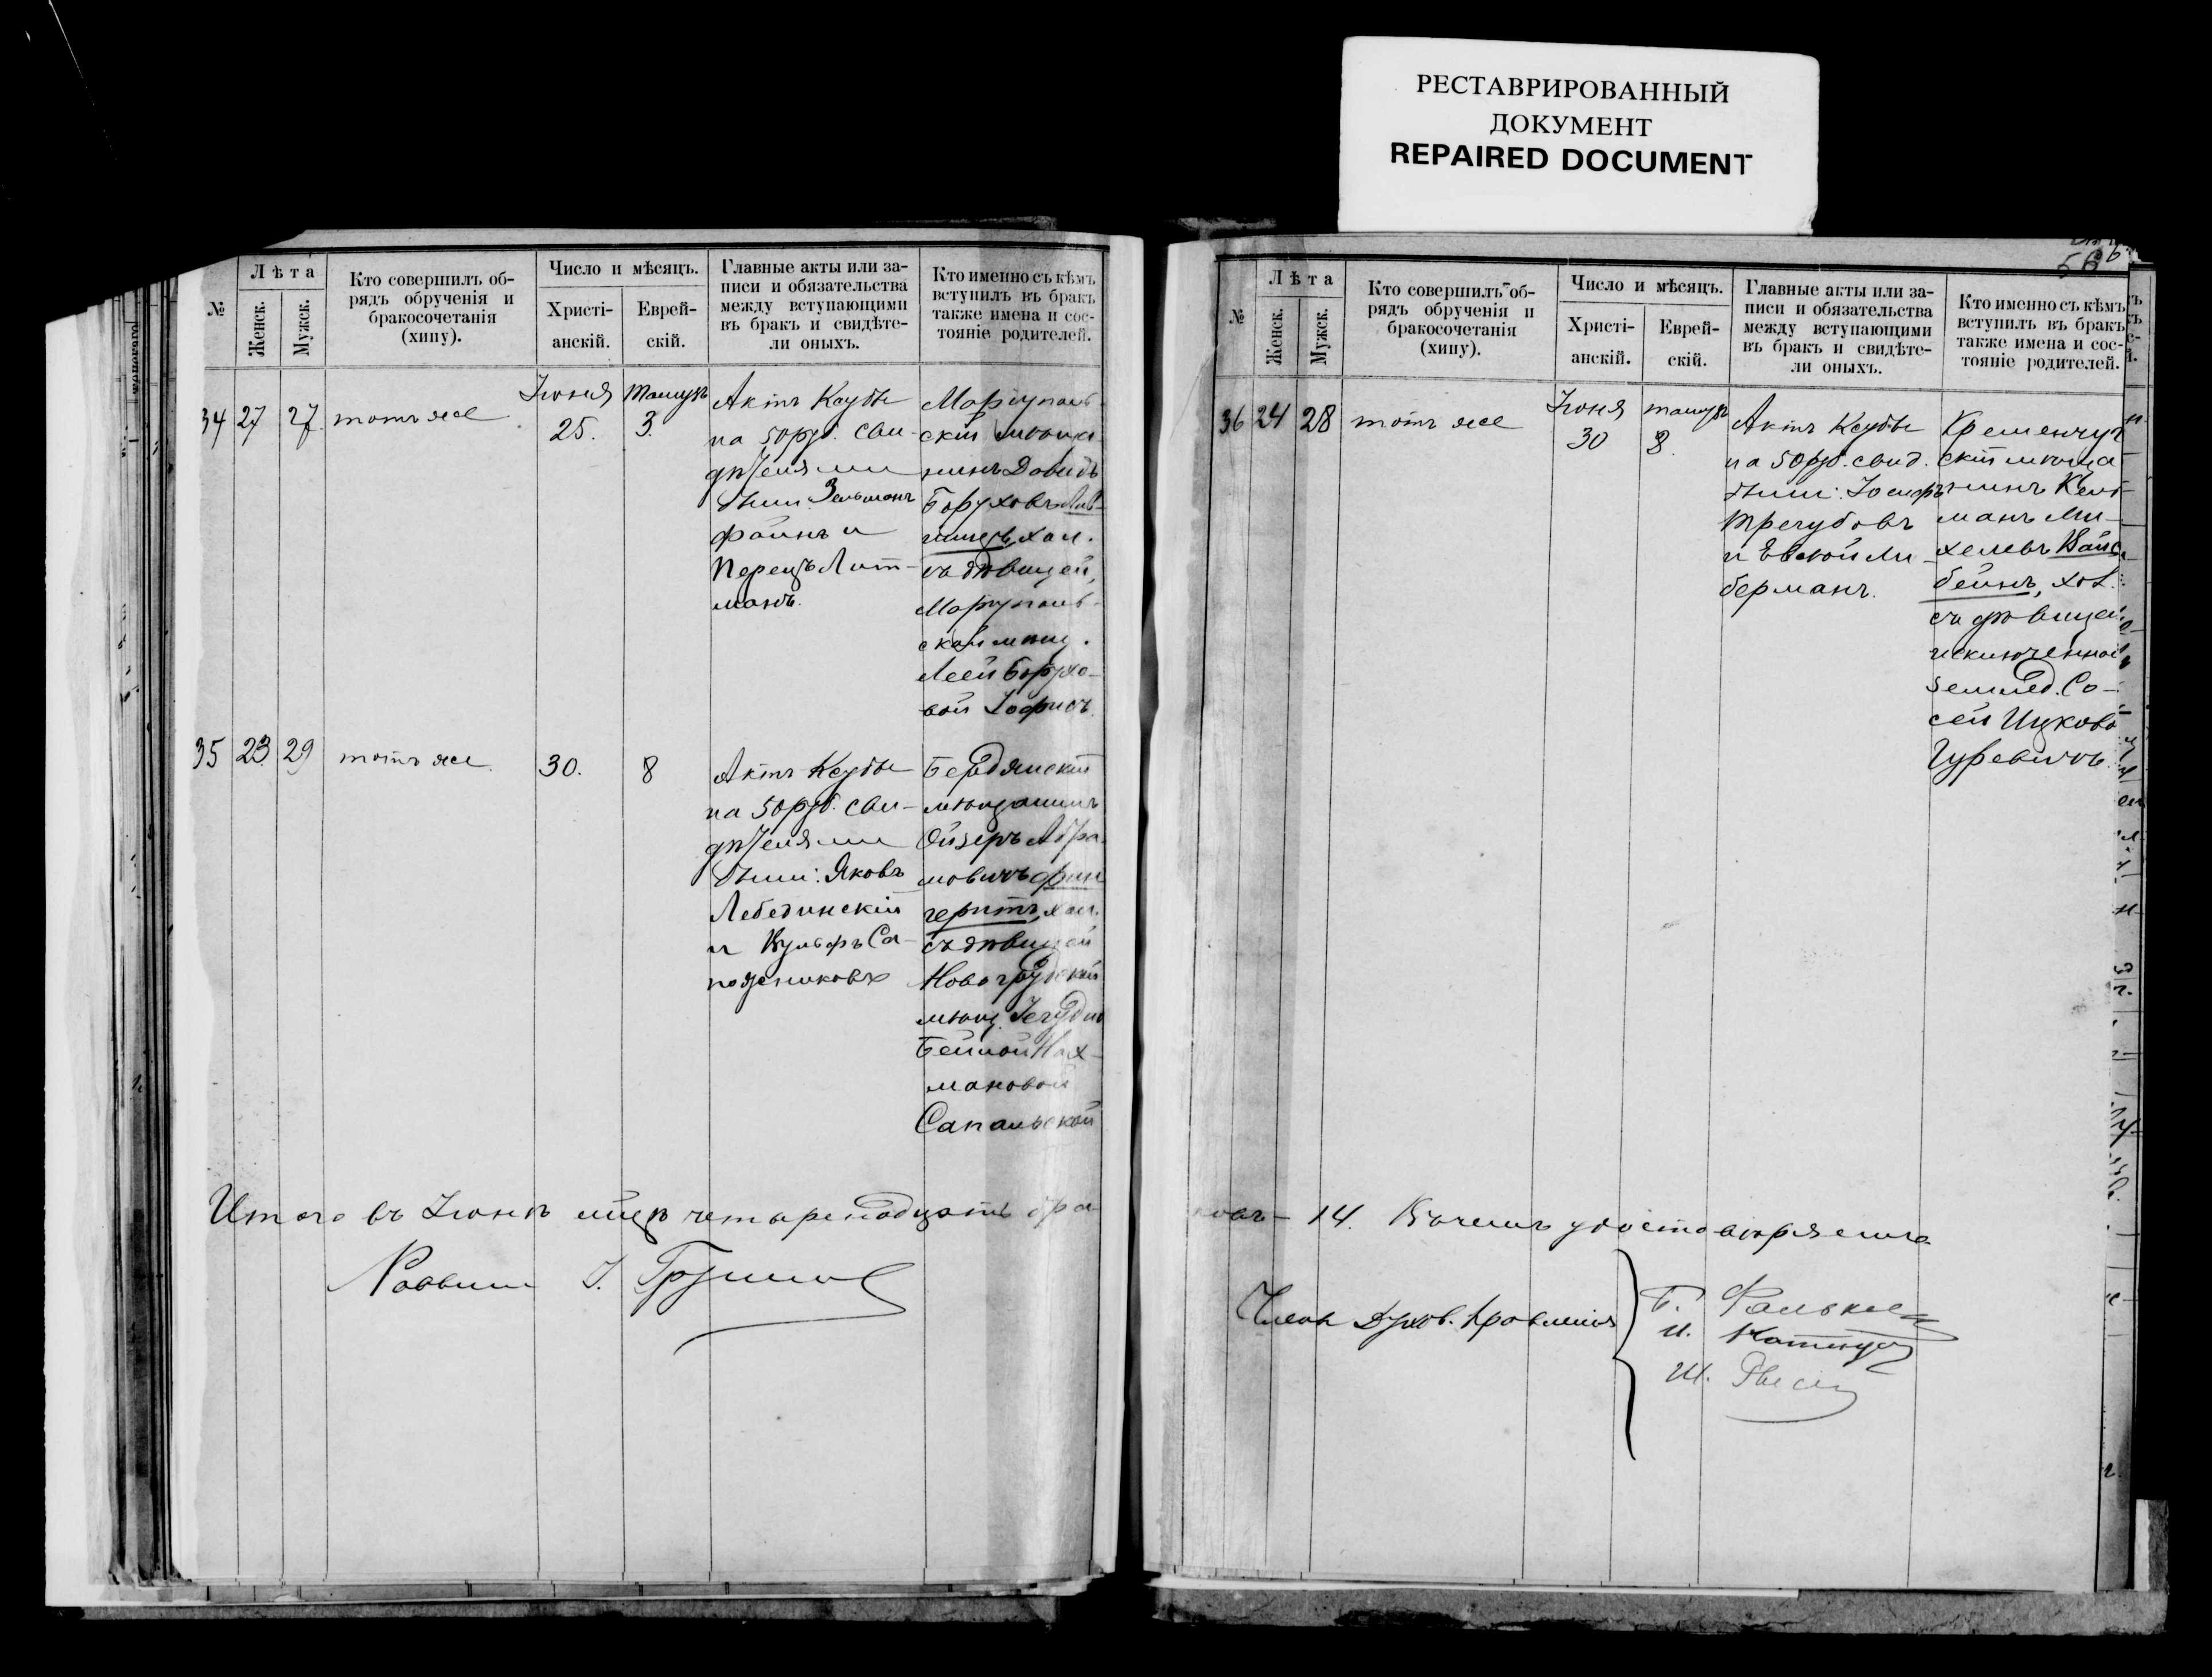 РЕСТАВРИРОВАННЫЙ
ДОКУМЕНТ
REPAIRED DOCUMENT
№
Лѣта
Женск.
Мужск.
Кто совершилъ об-
рядъ обрученія и
бракосочетанія
(хипу).
Число и мѣсяцъ.
Христі-
анскій.
Еврей-
скій.
Главные акты или за-
писи и обязательства
между вступающими
въ бракъ и свидѣте-
ли оныхъ.
Кто именно съ кѣмъ
вступилъ въ бракъ
также имена и сос-
тояніе родителей.
34
27
27
тотъ же
Іюня
25.
Тамузъ
3.
Актъ Ксубы
на 50 руб. сви-
дѣтелями
были: Зельманъ
Файнъ и
Перецъ Лит-
манъ.
Маріуполь-
скій мѣща
нинъ Давидъ
Боруховъ
хол.
съ дѣвицей,
Маріуполь-
ской мѣщ.
Леей Борухо-
вой Іофисъ
35
23
29
тотъ же
30.
8
Актъ Ксубы
на 50 руб. сви-
дѣтелями
были: Яковъ
Лебединскій
и Вульфъ Са-
пожниковъ
Бердянскій
мѣщанинъ
Ойзеръ Абра-
мовичъ Фин
геритъ, хол.
съ дѣвицей
Новогрудской
мѣщ.
Бейлой Нах-
мановой
Сапальской
Итого въ Іюнѣ мцѣ четырнадцать бра-
Раввинъ І.
56
№
Лѣта
Женск.
Мужск.
Кто совершилъ об-
рядъ обрученія и
бракосочетанія
(хипу).
Число и мѣсяцъ.
Христі-
анскій.
Еврей-
скій.
Главные акты или за-
писи и обязательства
между вступающими
въ бракъ и свидѣте-
ли оныхъ.
Кто именно съ кѣмъ
вступилъ въ бракъ
также имена и сос-
тояніе родителей.
36
24
28
тотъ же
Іюня
30
тамузъ
8.
Актъ Ксубы
на 50 руб. свид.
были: Іосифъ
Трегубовъ
и Евсей Ли-
берманъ.
Кременчуг
скій мѣща
нинъ Кель-
манъ Ми-
хелевъ Вайс
бейнъ, хол.
съ дѣвицей
исключенной
землед. Со-
сей Ицково
Гуревичъ.
ковъ - 14. Въ чемъ удостовѣряемъ
Члены Духов. Правленія
Б.
И.
Ш.